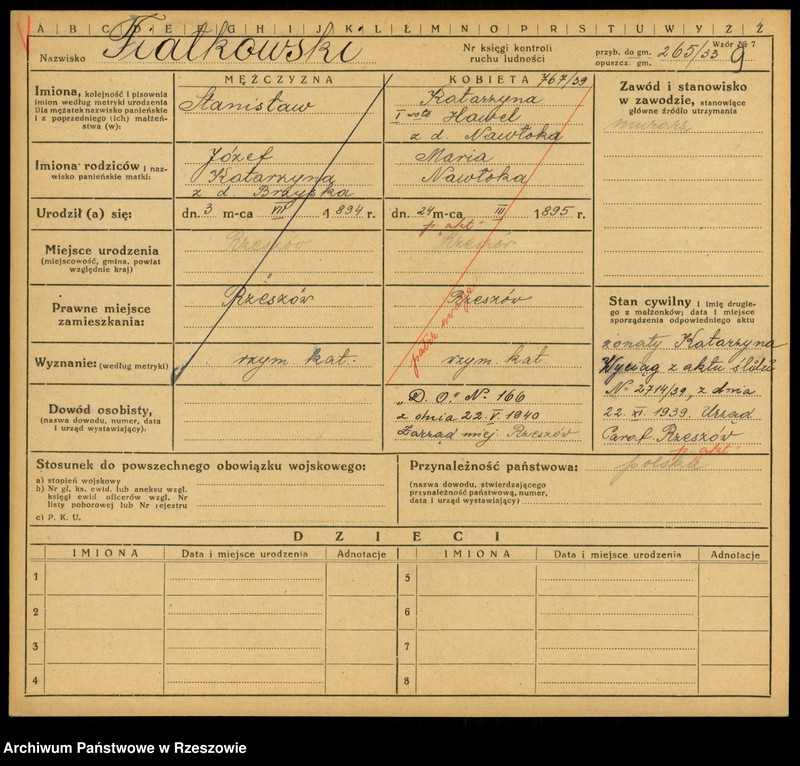 A B C D E F G H I J K L Ł M N O P R S T U W Y Z Ż
Nazwisko Fiałkowski
Nr księgi kontroli ruchu ludności
przyb. do gm. 265/33
opuszcz. gm.
Wzór Nr 7
9
MĘŻCZYZNA
KOBIETA 767/39
Imiona, kolejność i pisownia
imion według metryki urodzenia
Dla mężatek nazwisko panieńskie
i z poprzedniego (ich) małżeń-
stwa (w):
Stanisław
Katarzyna
I voto Hawel
z d. Nawłoka
Zawód i stanowisko
w zawodzie, stanowiące
główne źródło utrzymania
murarz
Imiona rodziców i naz-
wisko panieńskie matki:
Józef
Katarzyna
z d. Brzyska
Maria
Nawłoka
Urodził (a) się:
dn. 3 m-ca VII 1894 r.
dn. 24 m-ca III 1895 r.
p. akt
Miejsce urodzenia
(miejscowość, gmina, powiat
względnie kraj)
Rzeszów
Rzeszów
Prawne miejsce
zamieszkania:
Rzeszów
Rzeszów
patrz uwaga
Stan cywilny i imię drugie-
go z małżonków; data i miejsce
sporządzenia odpowiedniego aktu
żonaty Katarzyna
Wyciąg z aktu ślubu
Nr 2714/39, z dnia
22. XI. 1939. Urząd
Paraf. Rzeszów
p. akt
Wyznanie: (według metryki)
rzym. kat.
rzym. kat
Dowód osobisty,
(nazwa dowodu, numer, data
i urząd wystawiający):
"D. O." Nr 166
z dnia 22. V. 1940
Zarząd miej. Rzeszów
Stosunek do powszechnego obowiązku wojskowego:
a) stopień wojskowy
b) Nr gl. ks. ewid. lub aneksu wzgl.
księgi ewid oficerów wzgl. Nr
listy poborowej lub Nr rejestru
c) P. K. U.
Przynależność państwowa: polska
(nazwa dowodu, stwierdzającego
przynależność państwową, numer,
data i urząd wystawiający)
DZIECI
IMIONA Data i miejsce urodzenia Adnotacje IMIONA Data i miejsce urodzenia Adnotacje
1 5
2 6
3 7
4 8
Archiwum Państwowe w Rzeszowie